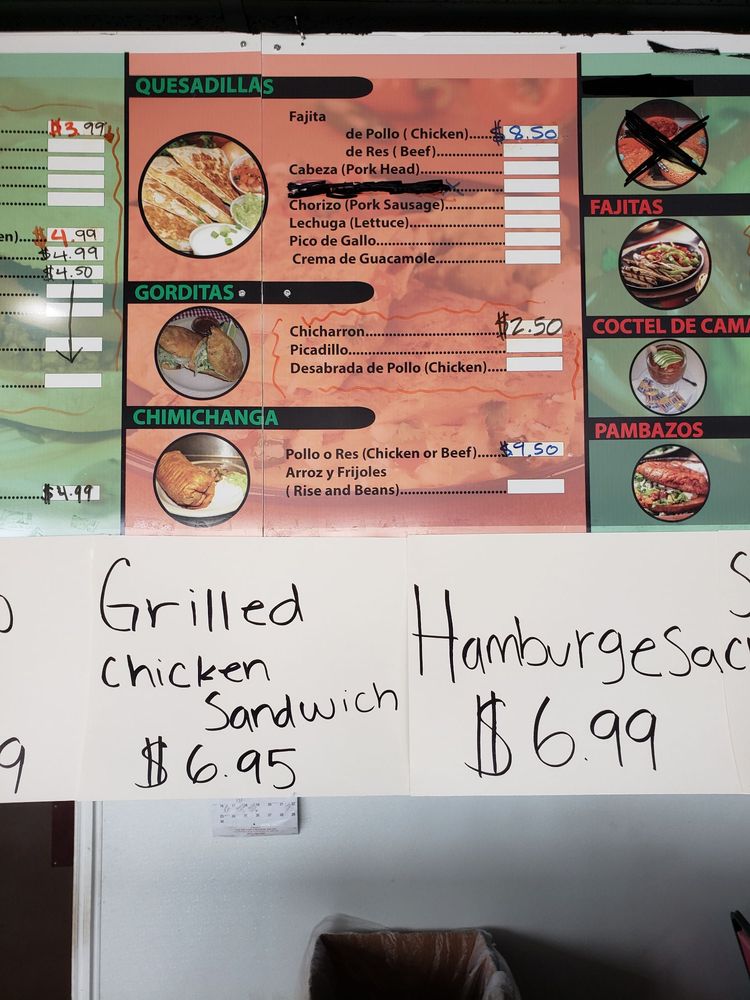 $3.99
en)....$4.99
$4.99
$4.50
$4.99
QUESADILLAS
Fajita
de Pollo ( Chicken)......$8.50
de Res ( Beef)
Cabeza (Pork Head)
Chorizo (Pork Sausage)
Lechuga (Lettuce)
Pico de Gallo
Crema de Guacamole
GORDITAS
Chicharron $2.50
Picadillo
Desabrada de Pollo (Chicken)
CHIMICHANGA
Pollo o Res (Chicken or Beef) $9.50
Arroz y Frijoles
( Rise and Beans)
FAJITAS
COCTEL DE CAMA
PAMBAZOS
Grilled
chicken
Sandwich
$6.95
Hamburgesa
$6.99
9